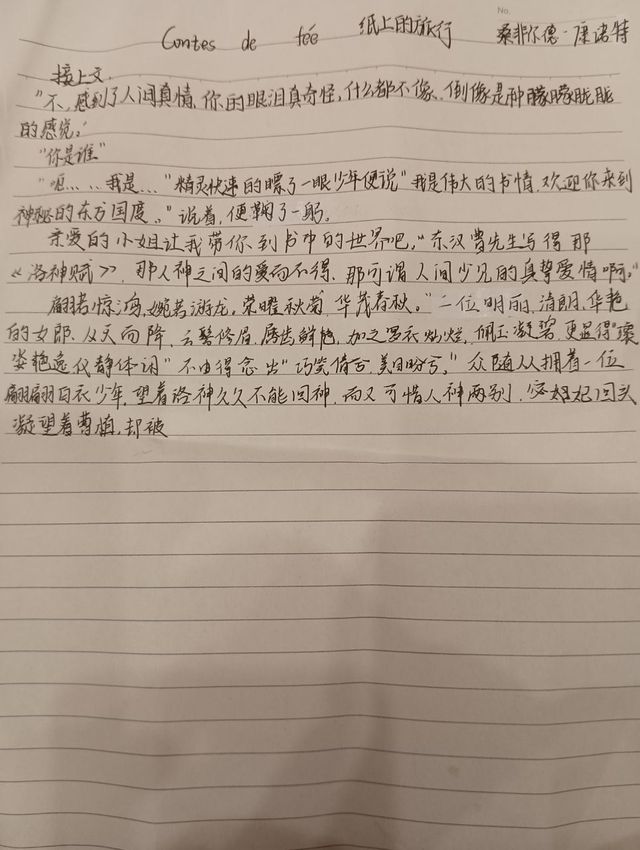 No.
Contes de fée 纸上的旅行 桑非尔德·康诺特
接上文.
"不、感到了人间真情、你的眼泪真奇怪,什么都不像、倒像是种朦朦胧胧
的感觉,"
"你是谁"
"呃……我是…"精灵快速的瞟了一眼少年便说"我是伟大的书情,欢迎你来到
神秘的东方国度。"说着,便鞠了一躬。
亲爱的小姐让我带你到书中的世界吧,"东汉曹先生写得那
《洛神赋》,那人神之间的爱而不得、那可谓人间少见的真挚爱情啊,"
翩若惊鸿,婉若游龙,荣曜秋菊,华茂春秋。"二位明丽,清朗,华艳
的女郎、从天而降,云髻修眉,唇齿鲜艳,加之罗衣灿烂,佩玉凝碧,更显得"瓌
姿艳逸仪静体闲"不由得念出"巧笑倩兮,美目盼兮,"众随从拥着一位
翩翩白衣少年,望着洛神久久不能回神,而又可惜人神两别,宓妃回头
凝望着曹植,却被